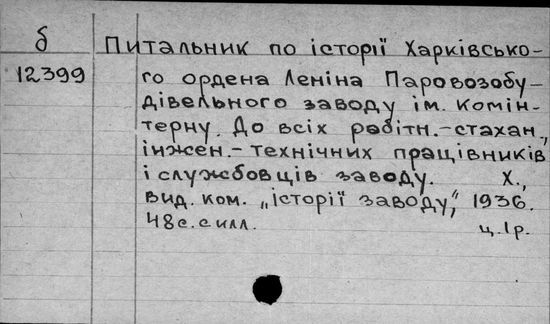 б
Питальник по історії Харківсько-
12399
го ордена Леніна Паровозобу-
дівельного заводу ім. Комін-
терну. До всіх робітн.-стахан.,
інжен.-технічних працівників
і службовців заводу. Х.,
вид. ком. „історії заводу", 1936.
48с. с илл. ц. 1р.